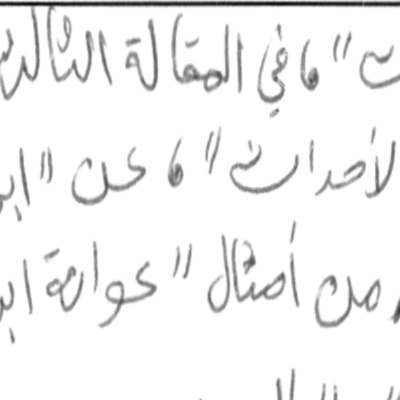 ث"، في المقالة الثالث
لأحداث"، عن "اب
من أمثال "عوارمة اب